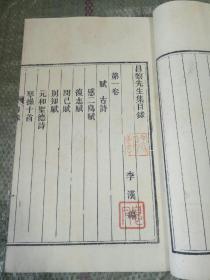 昌黎先生集目錄
李漢編
第一卷
賦 古詩
感二鳥賦
復志賦
閔己賦
別知賦
元和聖德詩
琴操十首